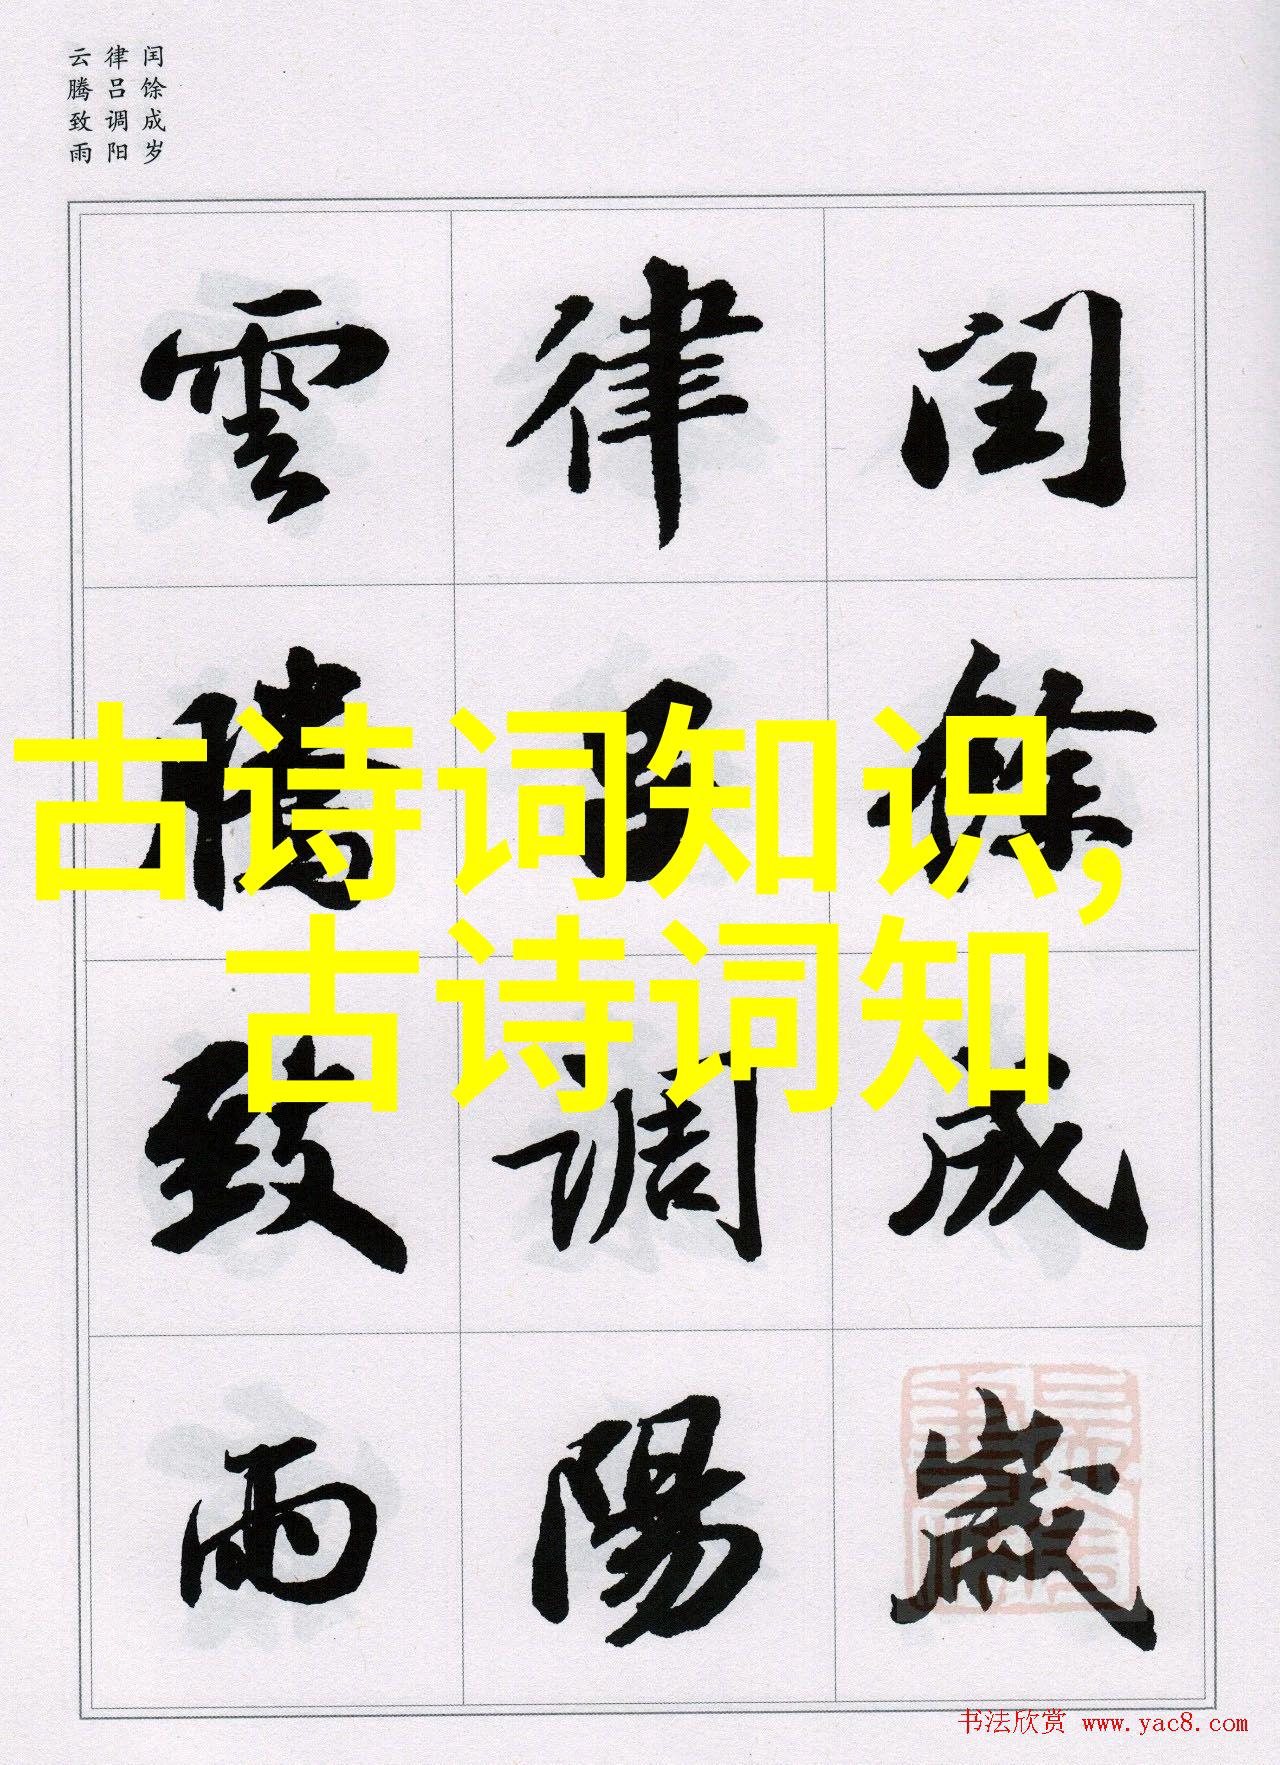 闰馀成岁
律吕调阳
云腾致雨
閏餘成歲
律吕調陽
雲騰致雨
古诗词知识,
古诗词知
书法欣赏 www.yac8.com